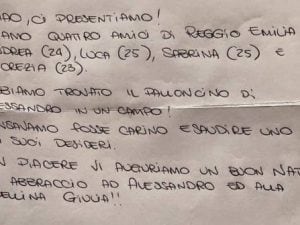 AO, CI PRESENTIAMO!
AMO QUATTRO AMICI DI REGGIO EMILIA
DREA (24), LUCA (25), SABRINA (25) E
OREZIA (23).
BIAMO TROVATO IL PALLONCINO DI
ESSANDRO IN UN CAMPO!
NSAVAMO FOSSE CARINO ESAUDIRE UNO
SUOI DESIDERI.
N PIACERE VI AUGURIAMO UN BUON NAT
ABBRACCIO AD ALESSANDRO ED ALLA
ELLINA GIULIA!!